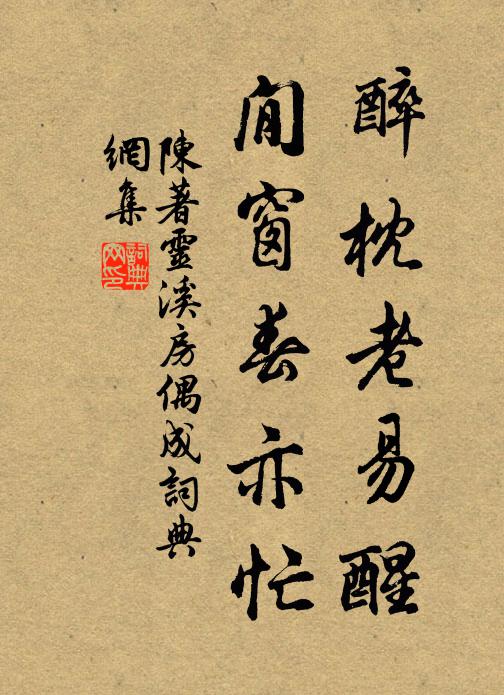 醉枕老易醒
閒窗春亦忙
陳著靈溪房偶成詞典
網集
詞典
网印